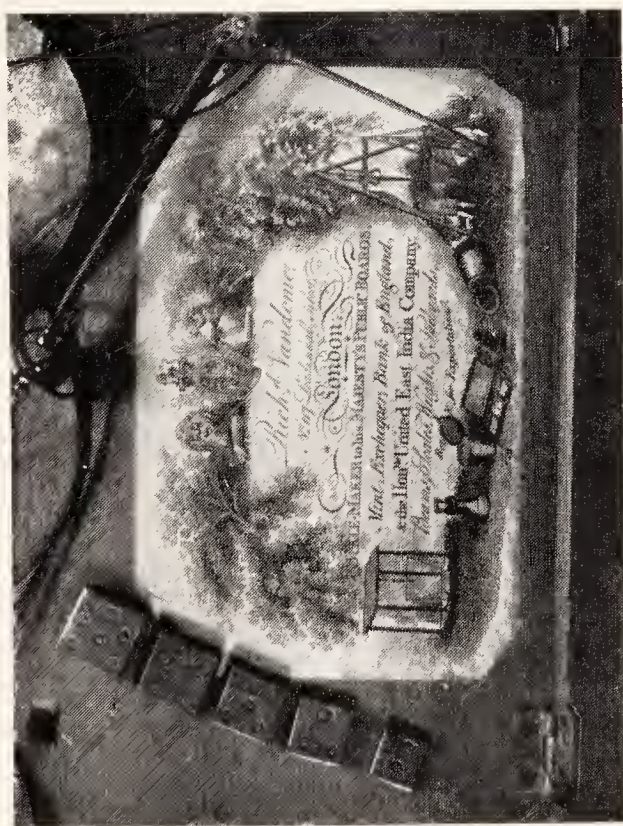 Richd. Vandome,
London.
SCALE-MAKER to his MAJESTY'S PUBLIC BOARDS,
Mint, Exchequer, Bank of England,
& the Honble. United East India Company.
Beams, Scales, Weights, &
for Exportation.